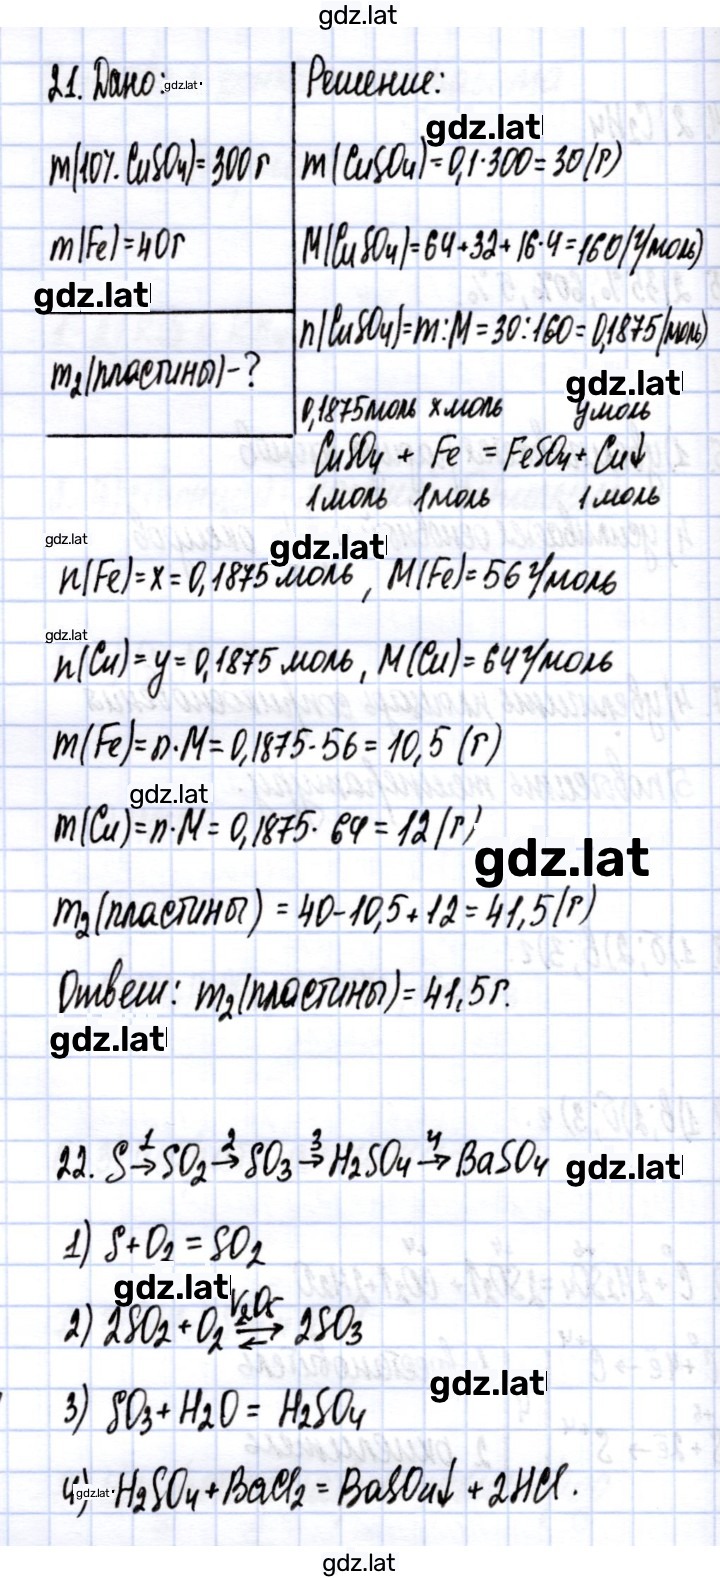 gdz.lat
21. Дано: gdz.lat
m(10% CuSO4)=300г
m(Fe)=40г
gdz.lat
m2(пластины)-?
Решение:
gdz.lat
m(CuSO4)=0,1·300=30(г)
M(CuSO4)=64+32+16·4=160(г/моль)
n(CuSO4)=m:M=30:160=0,1875(моль)
gdz.lat
0,1875моль xмоль yмоль
CuSO4 + Fe = FeSO4 + Cu↓
1моль 1моль 1моль
gdz.lat gdz.lat
n(Fe)=x=0,1875моль, M(Fe)=56г/моль
gdz.lat
n(Cu)=y=0,1875моль, M(Cu)=64г/моль
m(Fe)=n·M=0,1875·56=10,5(г)
gdz.lat
m(Cu)=n·M=0,1875·64=12(г)
gdz.lat
m2(пластины)=40-10,5+12=41,5(г)
Ответ: m2(пластины)=41,5г.
gdz.lat
22. S →1 SO2 →2 SO3 →3 H2SO4 →4 BaSO4
gdz.lat
1) S+O2=SO2
gdz.lat
2) 2SO2+O2 ⇄V2O5 2SO3
gdz.lat
3) SO3+H2O=H2SO4
4) gdz.lat H2SO4+BaCl2=BaSO4↓+2HCl.
gdz.lat